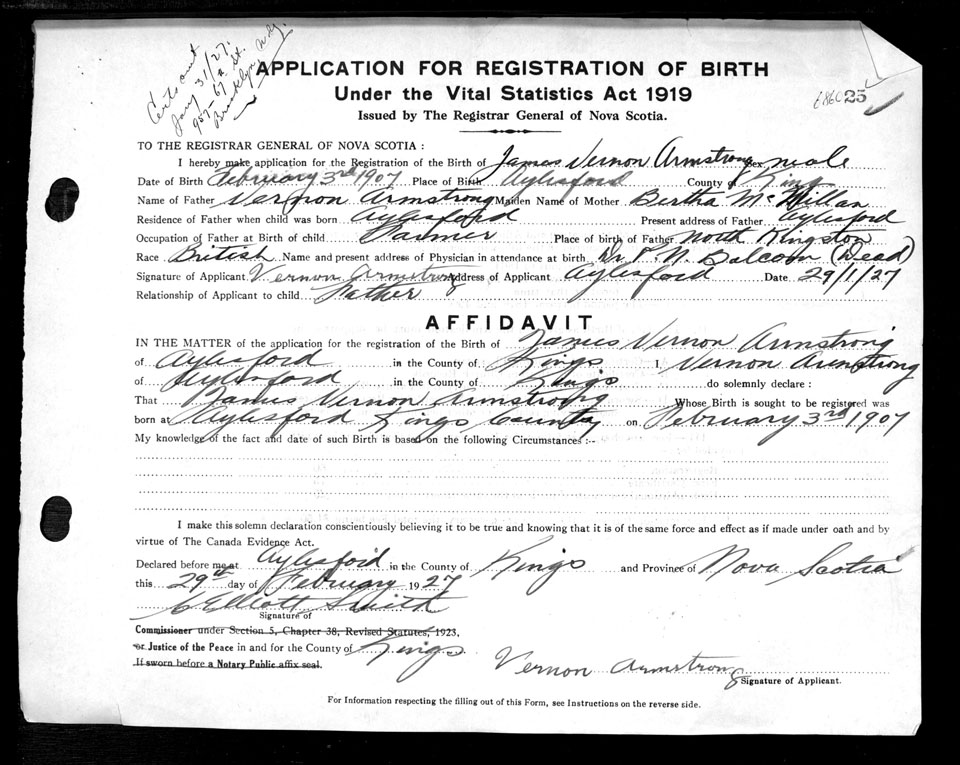 Certs out
Jany 31/27.
957-67th St.
Brooklyn N.Y.
APPLICATION FOR REGISTRATION OF BIRTH
Under the Vital Statistics Act 1919
25
Issued by The Registrar General of Nova Scotia.
TO THE REGISTRAR GENERAL OF NOVA SCOTIA :
I hereby make application for the Registration of the Birth of James Vernon Armstrong Sex male
Date of Birth February 3rd 1907 Place of Birth Aylesford County of King
Name of Father Vernon Armstrong Maiden Name of Mother Bertha McMillan
Residence of Father when child was born Aylesford Present address of Father Aylesford
Occupation of Father at Birth of child Farmer Place of birth of Father North Kingston
Race British Name and present address of Physician in attendance at birth Dr. P. N. Balcom (Dead)
Signature of Applicant Vernon Armstrong Address of Applicant Aylesford Date 29/1/27
Relationship of Applicant to child Father
AFFIDAVIT
IN THE MATTER of the application for the registration of the Birth of James Vernon Armstrong
of Aylesford in the County of Kings I, Vernon Armstrong
of Aylesford in the County of Kings do solemnly declare :
That James Vernon Armstrong Whose Birth is sought to be registered was
born at Aylesford Kings County on February 3rd 1907
My knowledge of the fact and date of such Birth is based on the following Circumstances :--
I make this solemn declaration conscientiously believing it to be true and knowing that it is of the same force and effect as if made under oath and by
virtue of The Canada Evidence Act.
Declared before me at Aylesford in the County of Kings and Province of Nova Scotia
this 29th day of February 1927
Elliott Smith
Signature of
Commissioner under Section 5, Chapter 38, Revised Statutes, 1923,
or Justice of the Peace in and for the County of Kings
If sworn before a Notary Public affix seal.
Vernon Armstrong
Signature of Applicant.
For Information respecting the filling out of this Form, see Instructions on the reverse side.